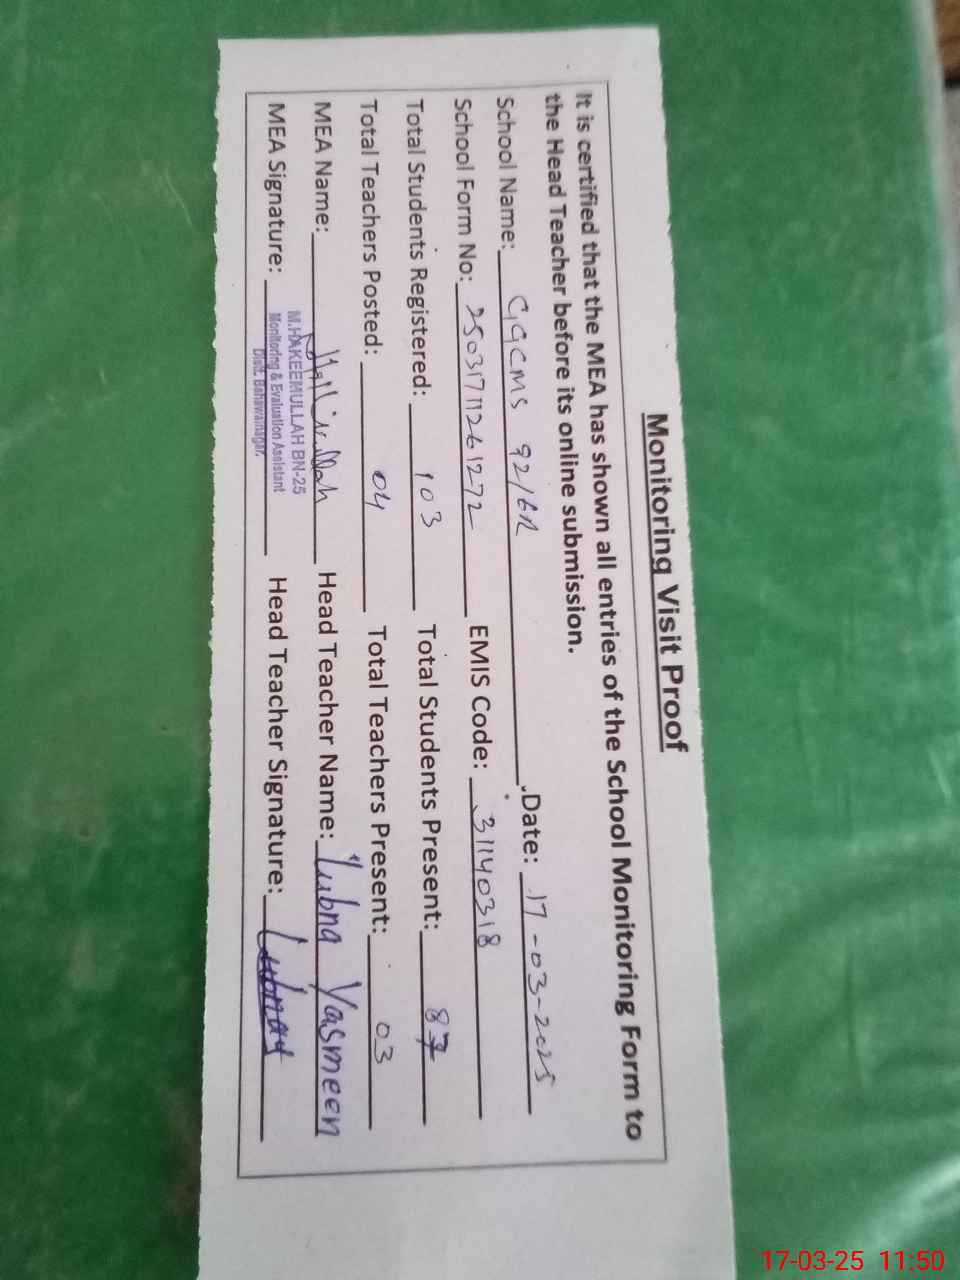 Monitoring Visit Proof
It is certified that the MEA has shown all entries of the School Monitoring Form to
the Head Teacher before its online submission.
School Name: GGCMS 92/6R Date: 17-03-2025
School Form No: 25031711261272 EMIS Code: 31140318
Total Students Registered: 103 Total Students Present: 87
Total Teachers Posted: 04 Total Teachers Present: 03
MEA Name: Head Teacher Name: Lubna Yasmeen
MEA Signature: Head Teacher Signature: Lubna
M.HAKEEMULLAH BN-25
Monitoring & Evaluation Assistant
Distt. Bahawalnagar.
17-03-25 11:50